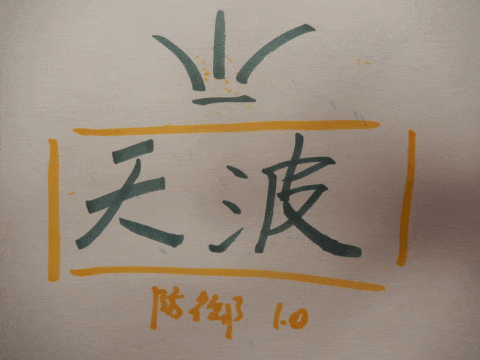 天波
防御 1.0